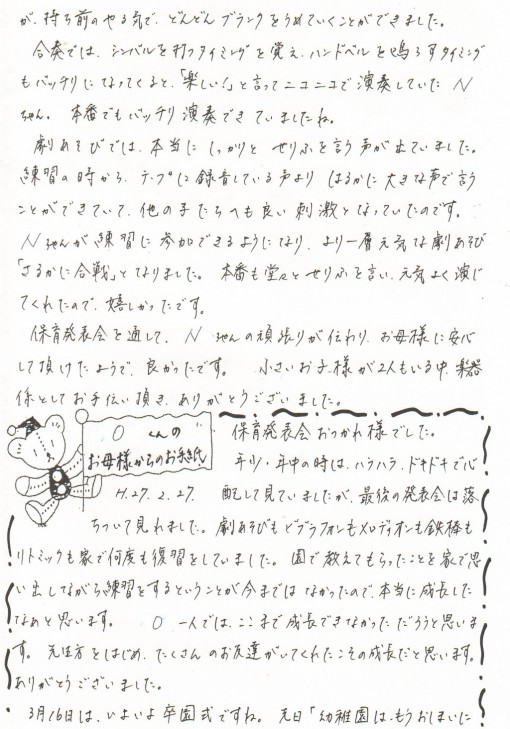 が、持ち前のやる気で、どんどんブランクをうめていくことができました。
合奏では、シンバルを打つタイミングを覚え、ハンドベルを鳴らすタイミング
もバッチリになってくると、「楽しい！」と言ってニコニコで演奏していた N
ちゃん。 本番でもバッチリ演奏できていましたね。
劇あそびでは、本当に しっかりと せりふを言う声が出ていました。
練習の時から、テープに録音している声より はるかに大きな声で言う
ことができていて、他の子たちへも良い刺激となっていたのです。
Nちゃんが練習に参加できるようになり、より一層元気な劇あそび
「さるかに合戦」となりました。 本番も堂々とせりふを言い、元気よく演じ
てくれたので、嬉しかったです。
保育発表会を通して、N ちゃんの頑張りが伝わり、お母様に安心
して頂けたようで、良かったです。 小さいお子様が2人もいる中、楽器
係としてお手伝い頂き、ありがとうございました。
O くんの
お母様からのお手紙
H.27.2.27.
保育発表会おつかれ様でした。
年少・年中の時は、ハラハラ、ドキドキで心
配して見ていましたが、最後の発表会は落
ちついて見れました。劇あそびもビブラフォンもメロディオンも鉄棒も
リトミックも家で何度も復習をしていました。園で教えてもらったことを家で思
い出しながら練習をするということが今までは なかったので、本当に成長した
なぁと思います。 O 一人では、ここまで成長できなかっただろうと思いま
す。先生方をはじめ、たくさんのお友達がいてくれたこその成長だと思います。
ありがとうございました。
3月16日は、いよいよ卒園式ですね。 先日「幼稚園は、もうおしまいに